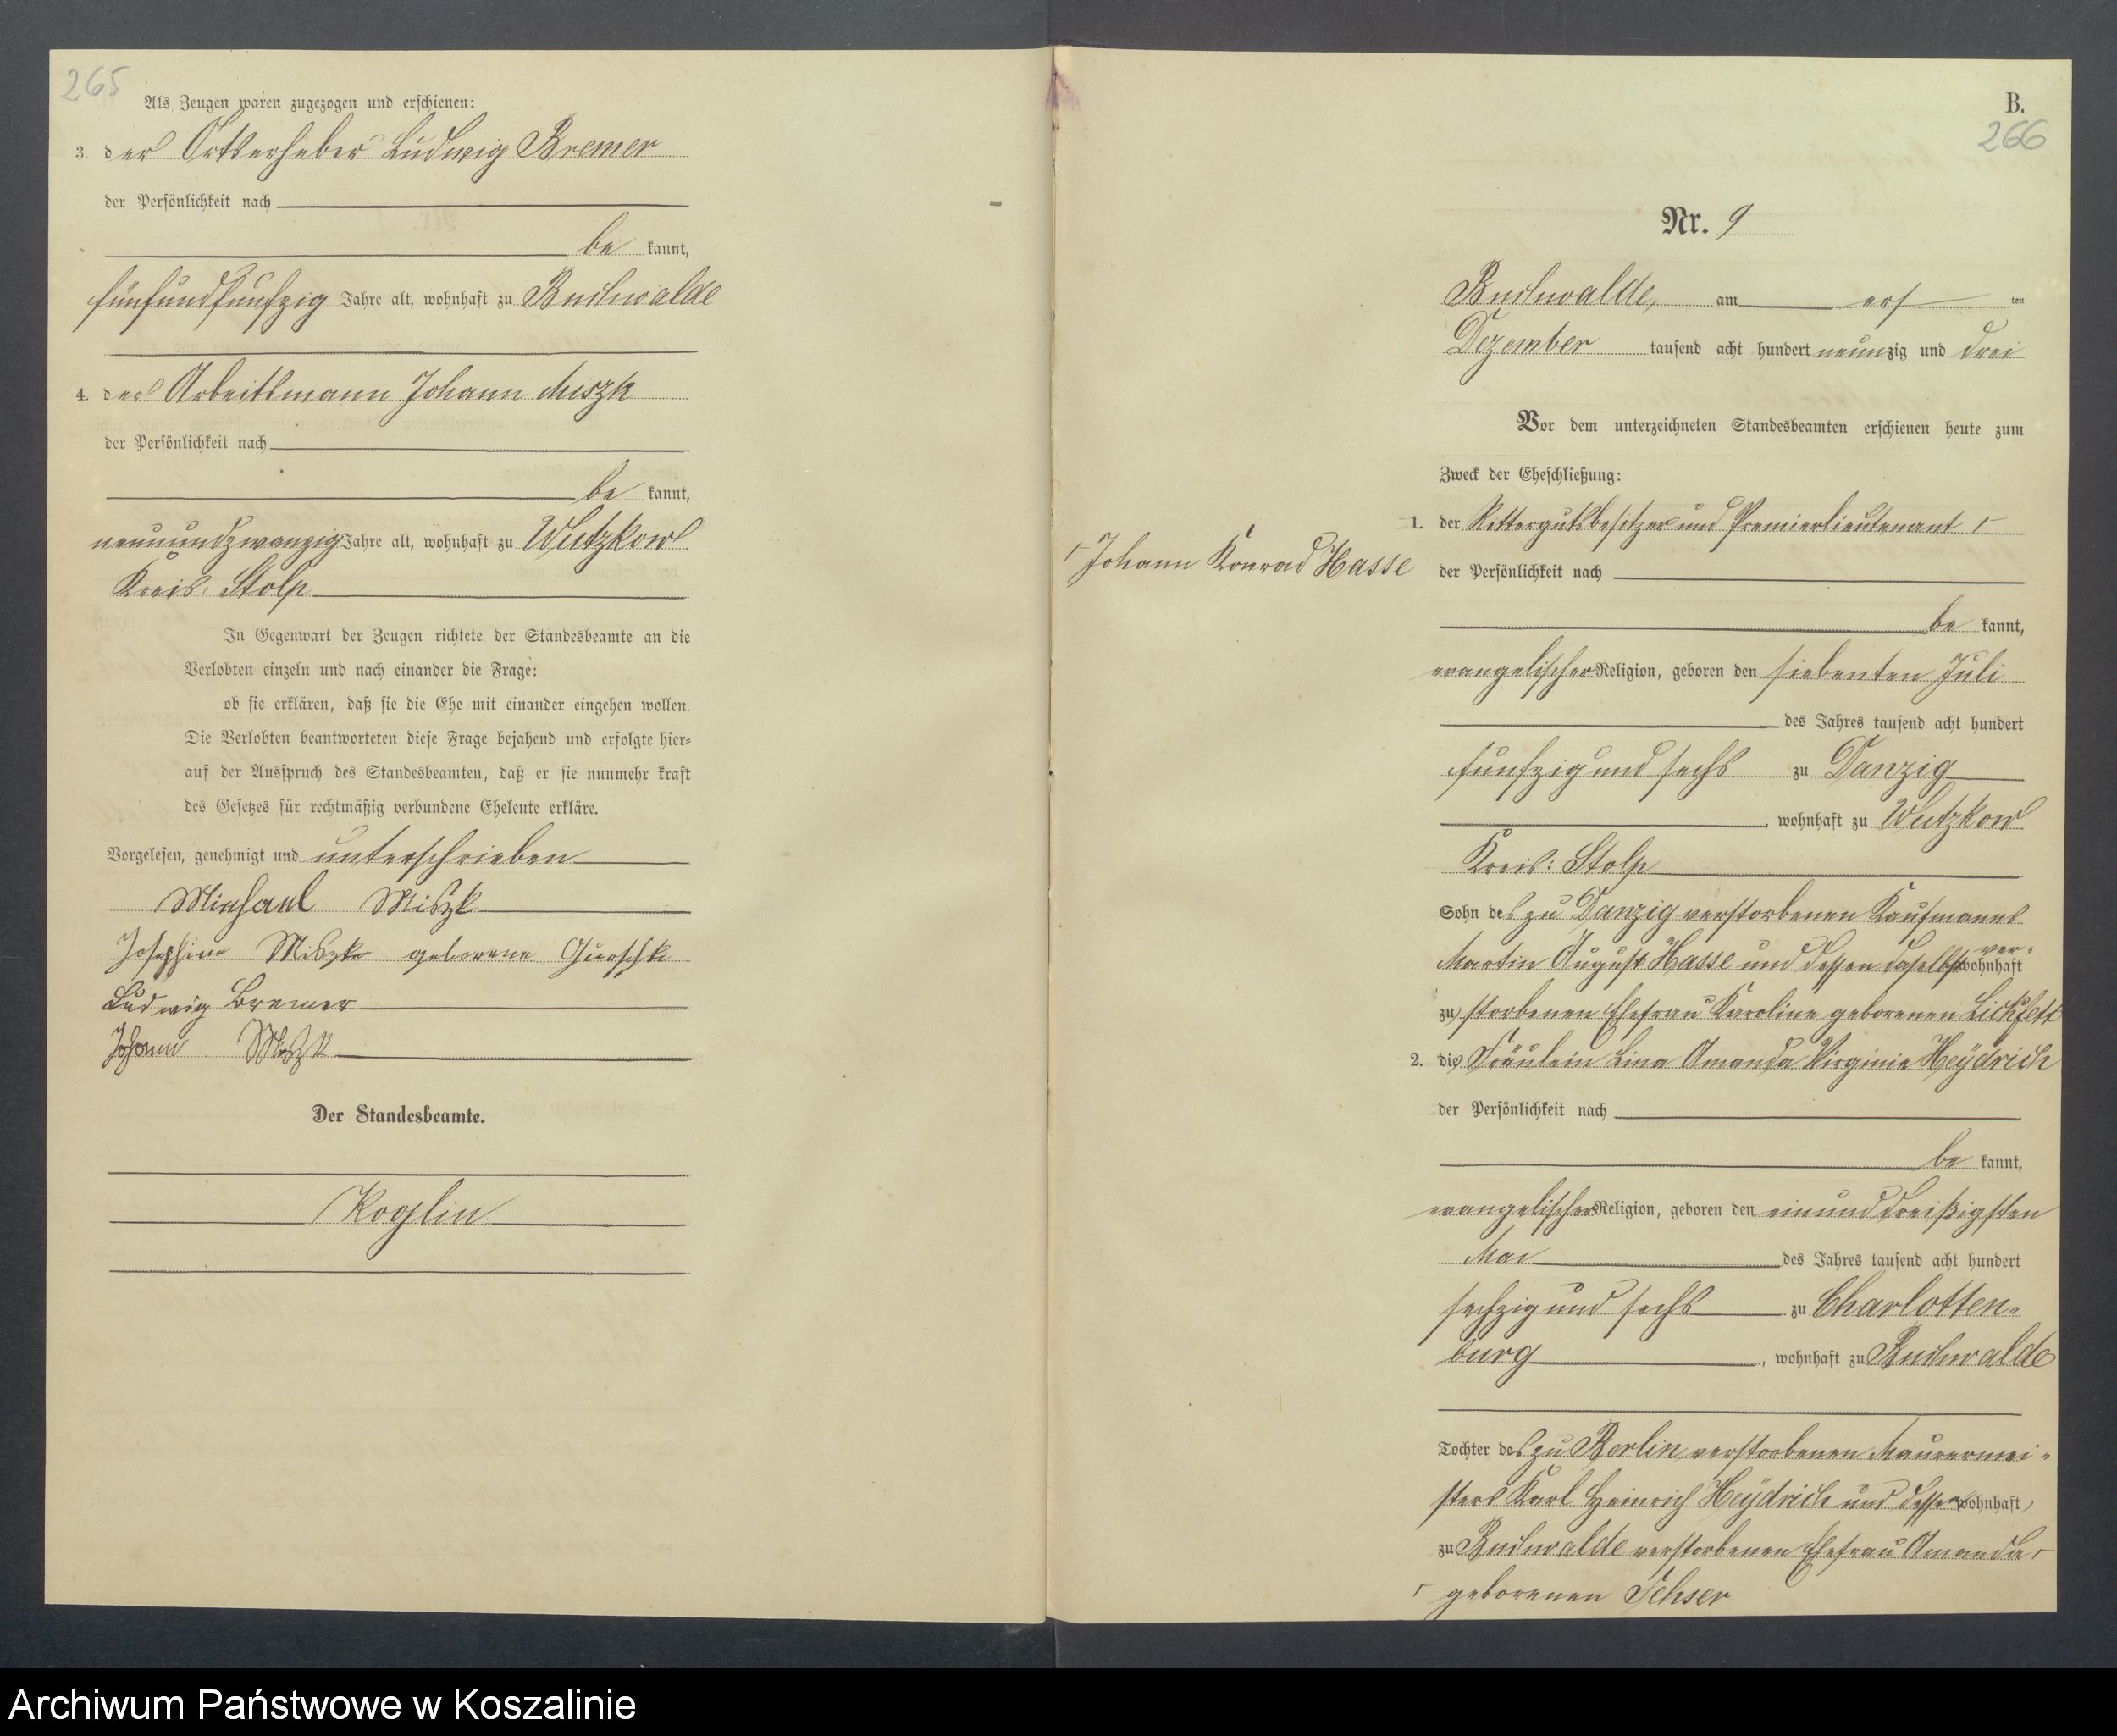 265
Als Zeugen waren zugezogen und erschienen:
3. der Ortserheber Ludwig Bremer
der Persönlichkeit nach
be kannt,
fünfundfünfzig Jahre alt, wohnhaft zu Buchwalde
4. der Arbeitsmann Johann Miszk
der Persönlichkeit nach
be kannt,
neunundzwanzig Jahre alt, wohnhaft zu Wutzkow
Kreis: Stolp
In Gegenwart der Zeugen richtete der Standesbeamte an die
Verlobten einzeln und nach einander die Frage:
ob sie erklären, daß sie die Ehe mit einander eingehen wollen.
Die Verlobten beantworteten diese Frage bejahend und erfolgte hier-
auf der Ausspruch des Standesbeamten, daß er sie nunmehr kraft
des Gesetzes für rechtmäßig verbundene Eheleute erkläre.
Vorgelesen, genehmigt und unterschrieben
Michael Miszk
Josephine Miszk geborene
Ludwig Bremer
Johann Miszk
Der Standesbeamte.
Koglin
B.
266
Nr. 9
Buchwalde, am erf ten
Dezember tausend acht hundert neunzig und drei
Vor dem unterzeichneten Standesbeamten erschienen heute zum
Zweck der Eheschließung:
1. der Rittergutsbesitzer und Premierlieutenant ┌
┌ Johann Konrad Hasse
der Persönlichkeit nach
be kannt,
evangelischer Religion, geboren den siebenten Juli
des Jahres tausend acht hundert
fünfzig und sechs zu Danzig
, wohnhaft zu Wutzkow
Kreis: Stolp
Sohn des zu Danzig verstorbenen Kaufmanns
Martin August Hasse und dessen daselbst ver- wohnhaft
zu storbenen Ehefrau Karoline geborenen Lichtfett
2. die Fräulein Lina Amanda Virginie Heydrich
der Persönlichkeit nach
be kannt,
evangelischer Religion, geboren den einunddreißigsten
Mai des Jahres tausend acht hundert
sechzig und sechs zu Charlotten-
burg, wohnhaft zu Buchwalde
Tochter des zu Berlin verstorbenen Maurermei-
sters Karl Heinrich Heydrich und dessen wohnhaft
zu Buchwalde verstorbenen Ehefrau Amanda ┌
┌ geborenen Ihser
Archiwum Państwowe w Koszalinie